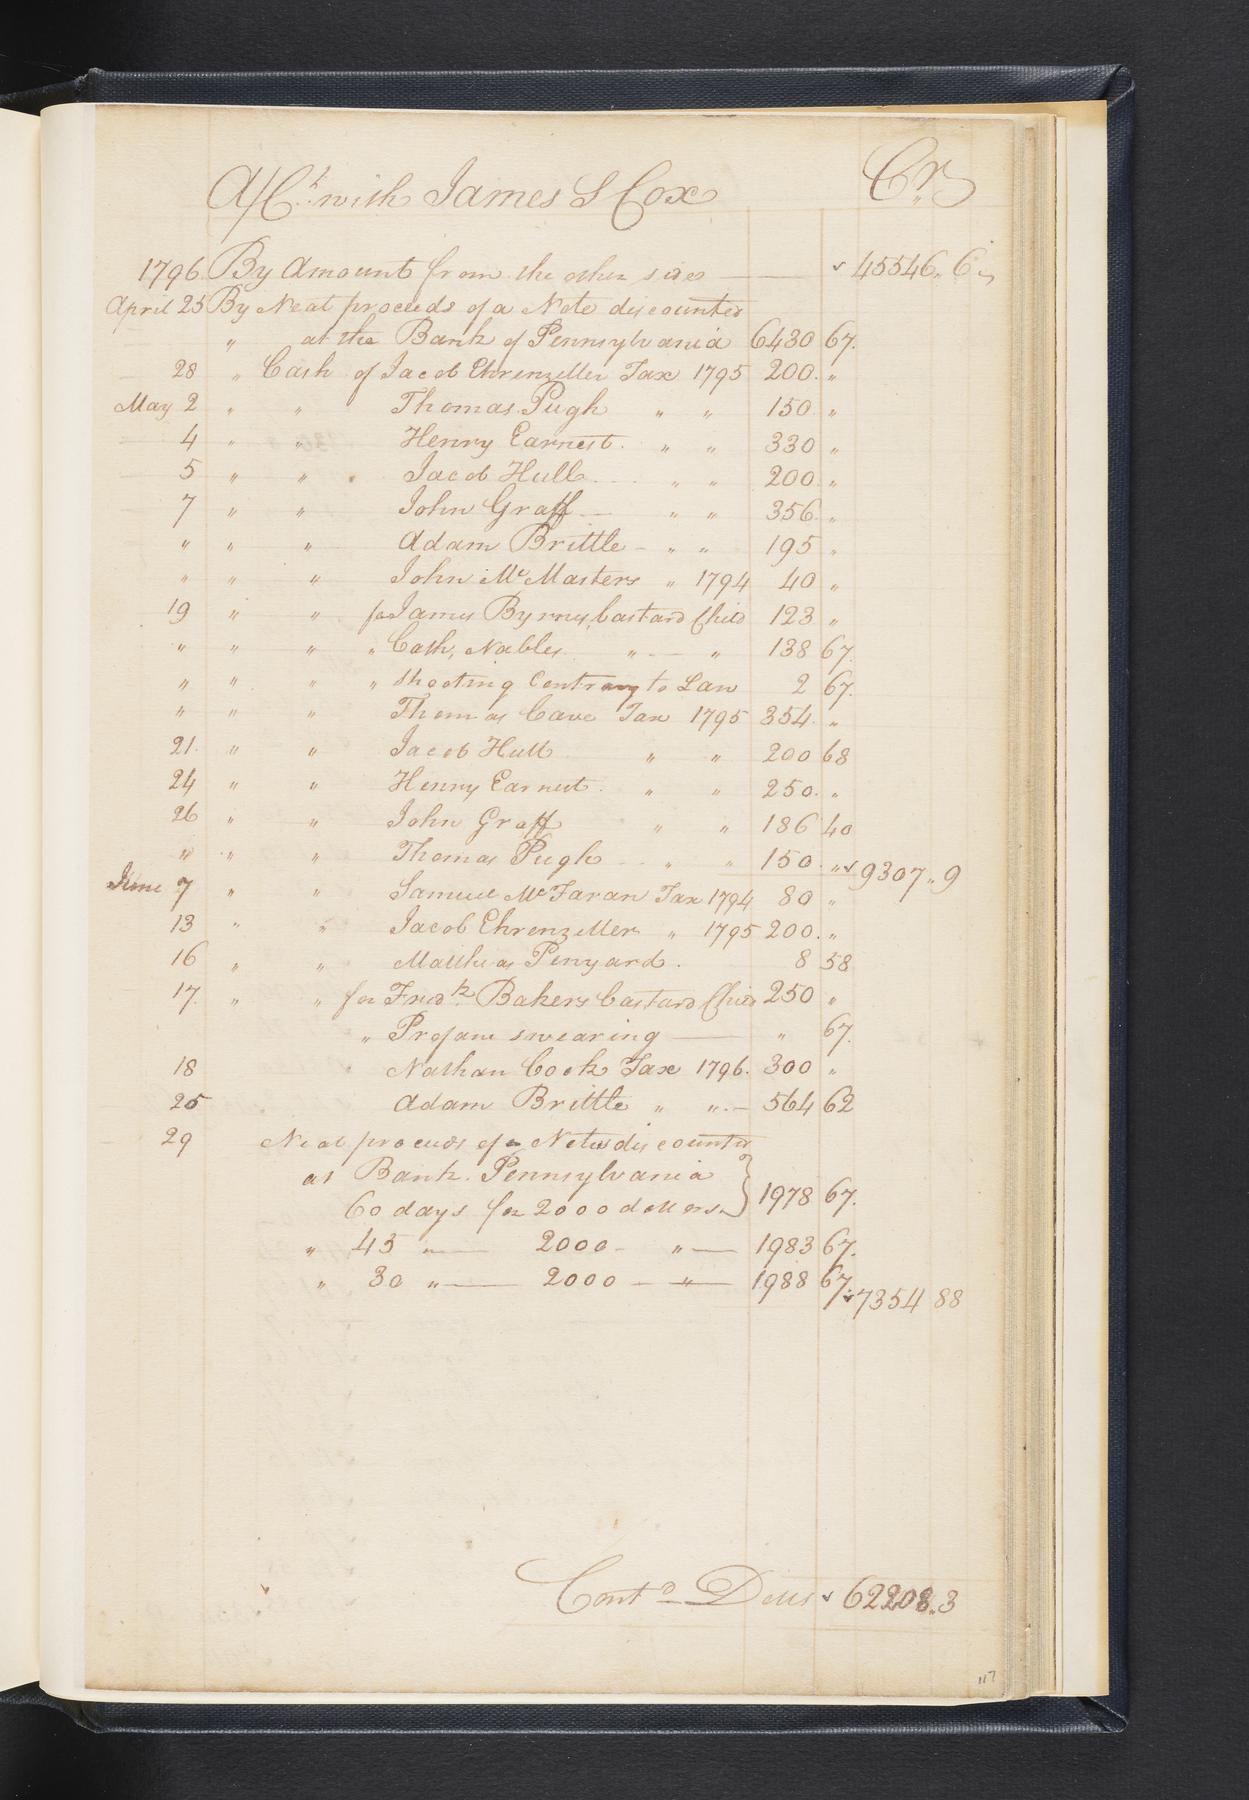 A/Ct. with James S Cox Cr.
1796. By Amount from the other side 45546.. 6
April 25 By Neat proceeds of a Note discounted
" at the Bank of Pennsylvania 6430 67.
28 " Cash of Jacob Ehrenzeller Tax 1795 200. "
May 2 " " Thomas Pugh " " 150 "
4 " " Henry Earnest. " " 330 "
5 " " Jacob Hull " " 200 "
7 " " John Graff " " 356 "
" " " Adam Brittle " " 195 "
" " " John McMasters " 1794 40 "
19 " " for James Byrnes, bastard Child 123 "
" " " " Cash, Nables " " 138 67.
" " " " shooting Contrary to Law 2 67.
" " " Thomas Cave Tax 1795 354. "
21. " " Jacob Hull " " 200 68
24 " " Henry Earnest. " " 250. "
26 " " John Graff " " 186 40
" " " Thomas Pugh " " 150. " 9307.. 9
June 7 " " Samuel McFaran Tax 1794 80 "
13 " " Jacob Ehrenzeller " 1795 200. "
16 " " Matthias Penyard. 8 58
17. " " for Fredk Bakers bastard Child 250 "
" Profane swearing " 67.
18 " Nathan Cook Tax 1796. 300 "
25 Adam Brittle " " 564 62
29 Neat proceeds of Notes discounted
at Bank. Pennsylvania
60 days for 2000 dollers. 1978 67.
" 45 " 2000 " 1983 67.
" 30 " 2000 " 1988 67. 7354 88
Contd Dolls 62208.. 3
117